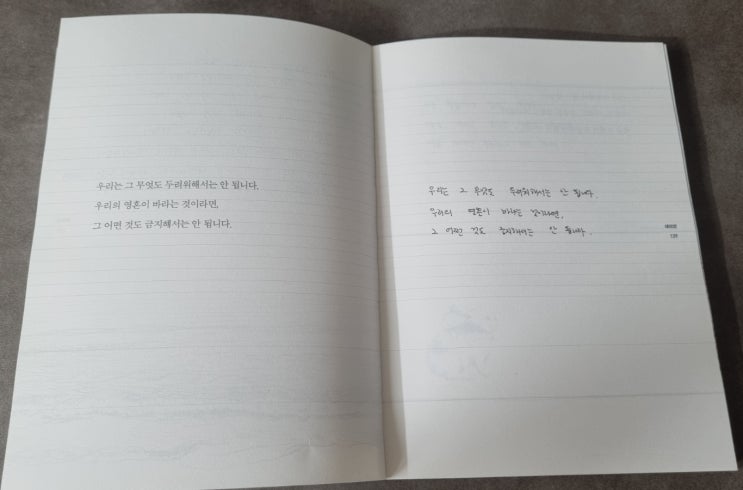 우리는 그 무엇도 두려워해서는 안 됩니다.
우리의 영혼이 바라는 것이라면,
그 어떤 것도 금지해서는 안 됩니다.
우리는 그 무엇도 두려워해서는 안 됩니다.
우리의 영혼이 바라는 것이라면,
그 어떤 것도 금지해서는 안 됩니다.
데미안